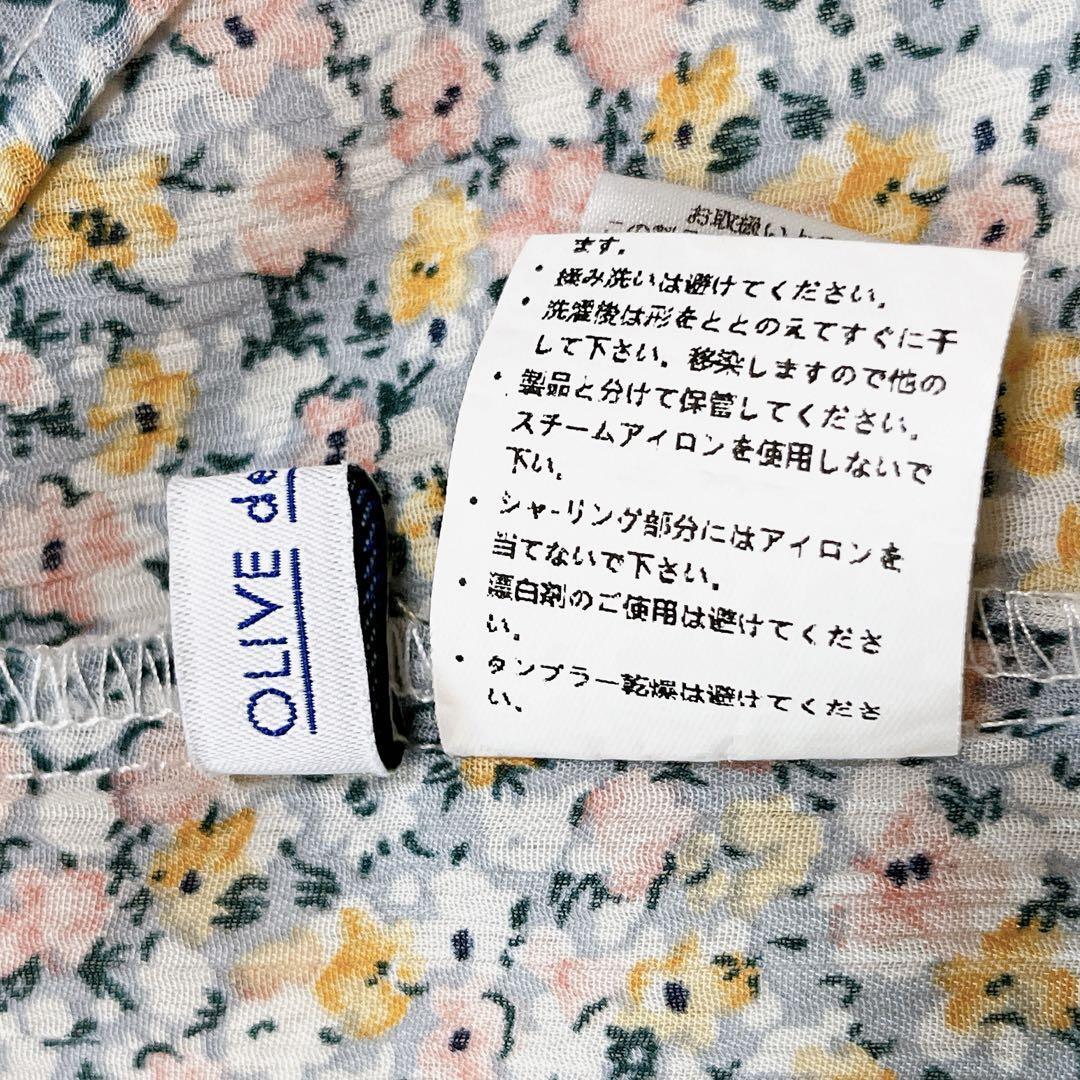 お取扱い
ます。
・揉み洗いは避けてください。
・洗濯後は形をととのえてすぐに干
して下さい。移染しますので他の
・製品と分けて保管してください。
スチームアイロンを使用しないで
下い。
・シャーリング部分にはアイロンを
当てないで下さい。
・漂白剤のご使用は避けてくださ
い。
・タンブラー乾燥は避けてくださ
い。
OLIVE de